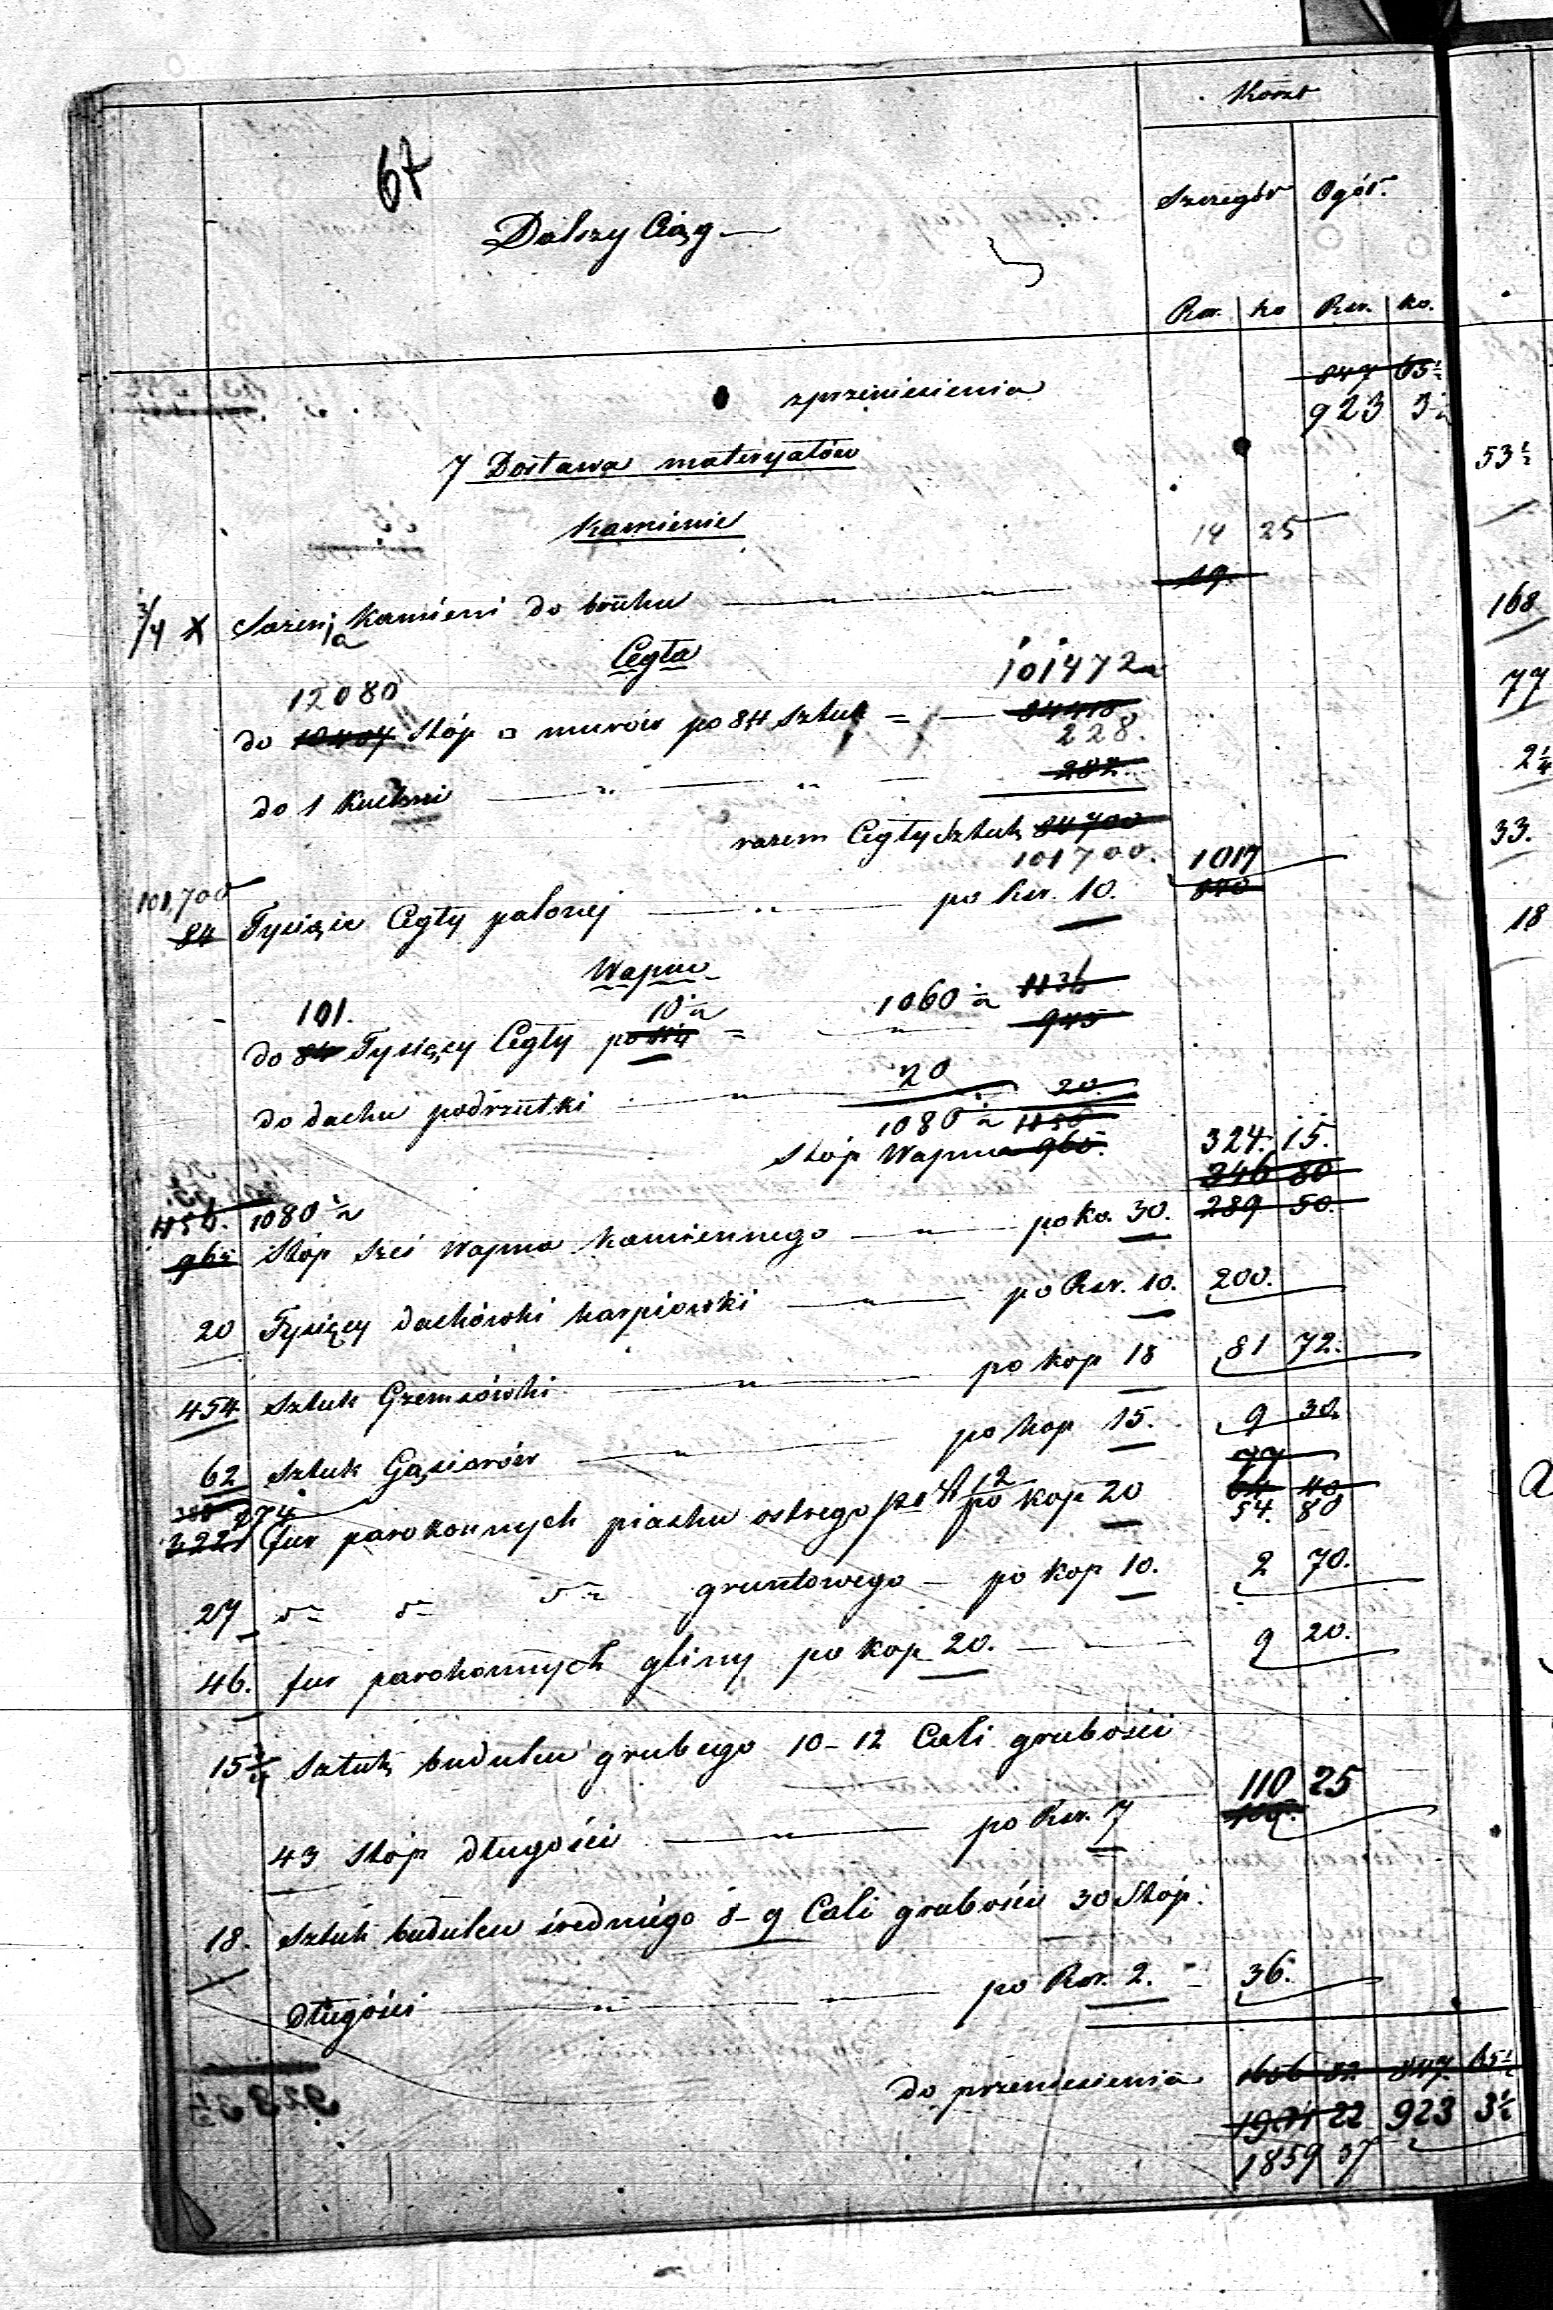 Koszt
67
Szczegół Ogół.
Dalszy Ciąg
Rsr. ko Rsr. ko.
847 65½
z przeniesienia
923 3½
7 Dostawa materyałów
53½
Kamienie
14 25
19.
3/4 X Sążeni Kamieni do bruku
168
Cegła
12080 101472
77
do stóp □ murów po 8,4 sztuk = 84418
228.
282.
2¼
do 1 Kuchni
razem Cegły sztuk 84700
33.
101700. 1017
101,700
84 Tysiące Cegły palonej po Rsr. 10. 840
18
Wapno
101. 10½ 1060½ 1136
do 84 Tysięcy Cegły po 11¼ = 945
20
do dachu podrzutki 20.
1080½ 1156
Stóp Wapna 965. 324. 15.
346 80
1156. 1080½
965 Stóp sześ Wapna kamiennego po ko. 30. 289 50.
20 Tysięcy dachówki karpiówki po Rsr. 10. 200.
454 sztuk Gzemsówki po kop 18 81 72.
62 sztuk Gąsiorów po kop 15. 9 30.
77
274
322 fur parokonnych piasku ostrego po kop 20 64 40
54. 80
27 gruntowego po kop 10. 2 70.
46. fur parokonnych gliny po kop 20. 9 20.
15¾ sztuk budulcu grubego 10-12 Cali grubości
110 25
43 stóp długości po Rsr. 7
18. sztuk budulcu średniego 8-9 Cali grubości 30 Stóp.
długości po Rsr. 2. 36.
do przeniesienia 1656 82 847 65½
22 923 3½
1859 37